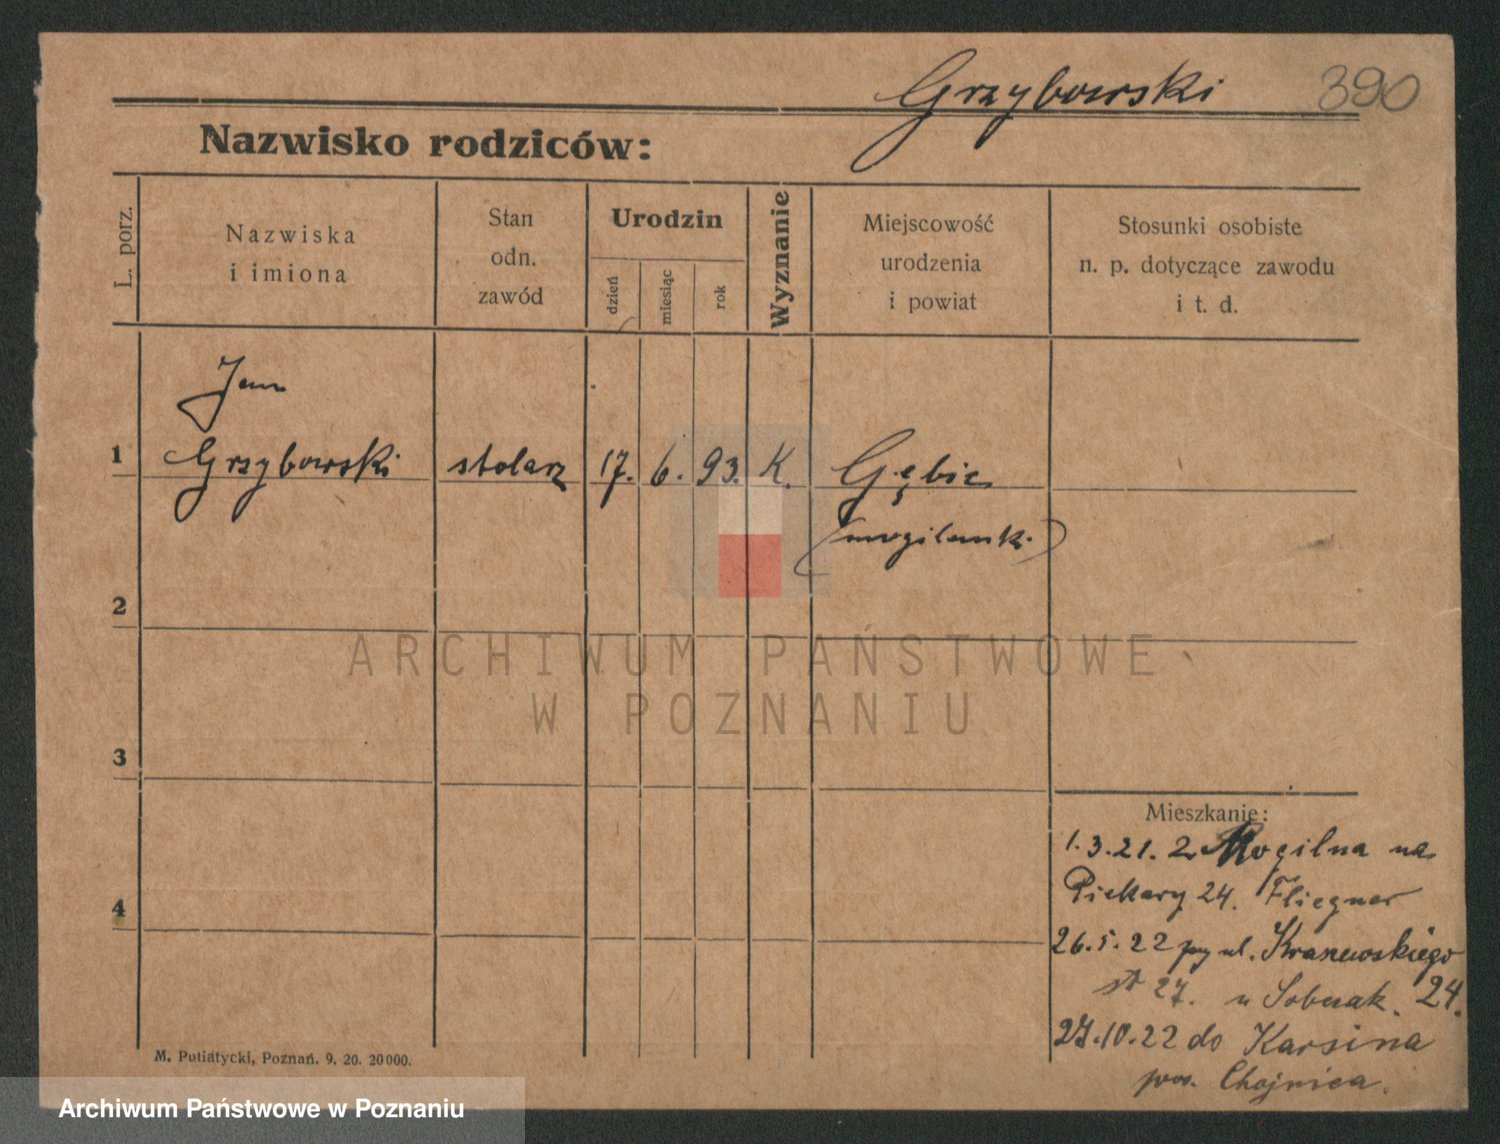 Grzybowski 390
Nazwisko rodziców:
L. porz.
Nazwiska
i imiona
Stan
odn.
zawód
Urodzin
dzień
miesiąc
rok
Wyznanie
Miejscowość
urodzenia
i powiat
Stosunki osobiste
n. p. dotyczące zawodu
i t. d.
Jan
1 Grzybowski stolarz 17. 6. 93. K. Gębic
(mogilenski)
2
ARCHIWUM PAŃSTWOWE
W POZNANIU
3
Mieszkanie:
1.3.21. z Mogilna na
Piekary 24. Fliegner
4
26.5.22 przy ul. Kraszewskiego
24.
27. u Sobczak.
27.10.22 do Karsina
pow. Chojnica.
M. Putiatycki, Poznań. 9. 20. 20000.
Archiwum Państwowe w Poznaniu